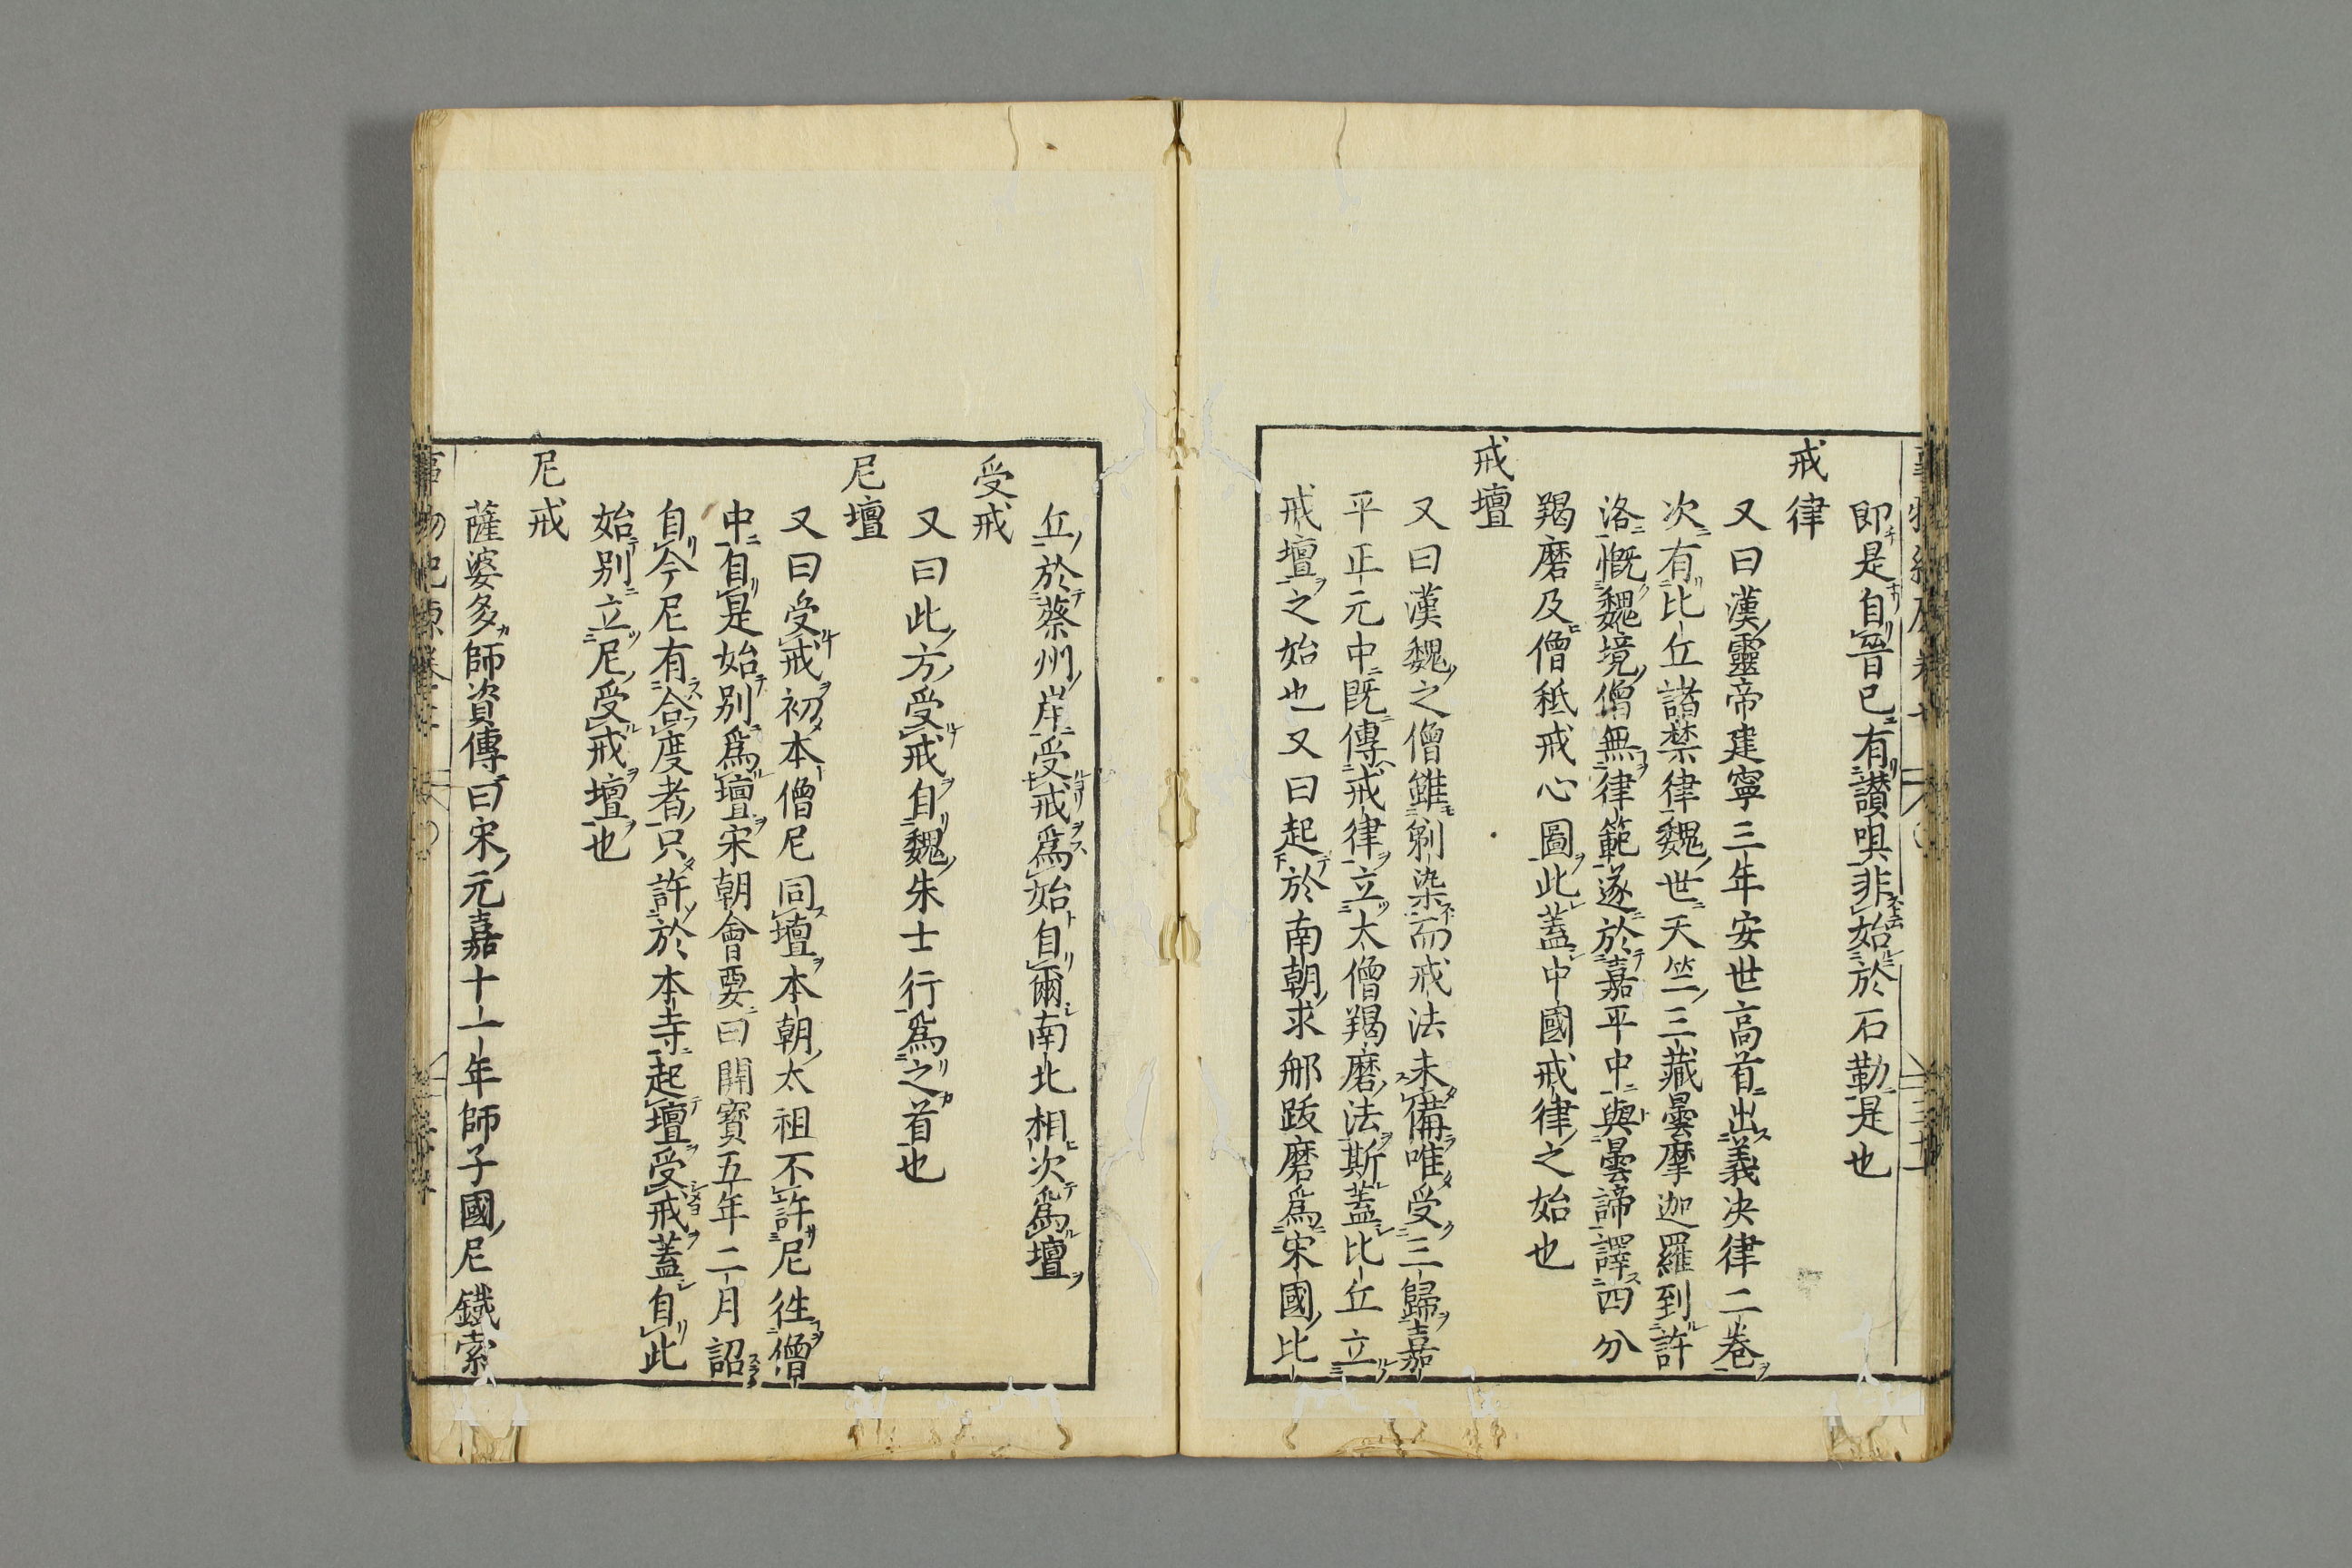 即是自晉已有讃唄非始於石勒是也
戒律
又曰漢靈帝建寧三年安世高首出義决律二卷
次有比丘諸禁律魏世天竺三藏曇摩迦羅到許
洛慨魏境僧無律範遂於嘉平中與曇諦譯四分
羯磨及僧秖戒心圖此蓋中國戒律之始也
戒壇
又曰漢魏之僧雖剃染而戒法未備唯受三歸嘉
平正元中既傳戒律立大僧羯磨法斯蓋比丘立
戒壇之始也又曰起於南朝求郍跋磨爲宋國比
丘於蔡州岸受戒爲始自爾南北相次爲壇
受戒
又曰此方受戒自魏朱士行爲之首也
尼壇
又曰受戒初本僧尼同壇本朝太祖不許尼往僧
中自是始別爲壇宋朝會要曰開寳五年二月詔
自今尼有合度者只許於本寺起壇受戒蓋自此
始別立尼受戒壇也
尼戒
薩婆多師資傳曰宋元嘉十一年師子國尼鐵索